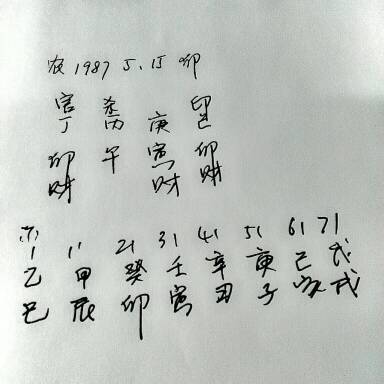 农1987 5.15 卯
官 杀 印
丁 丙 庚 己
卯 午 寅 卯
财 财 财
1 11 21 31 41 51 61 71
乙 甲 癸 壬 辛 庚 己 戊
巳 辰 卯 寅 丑 子 亥 戌